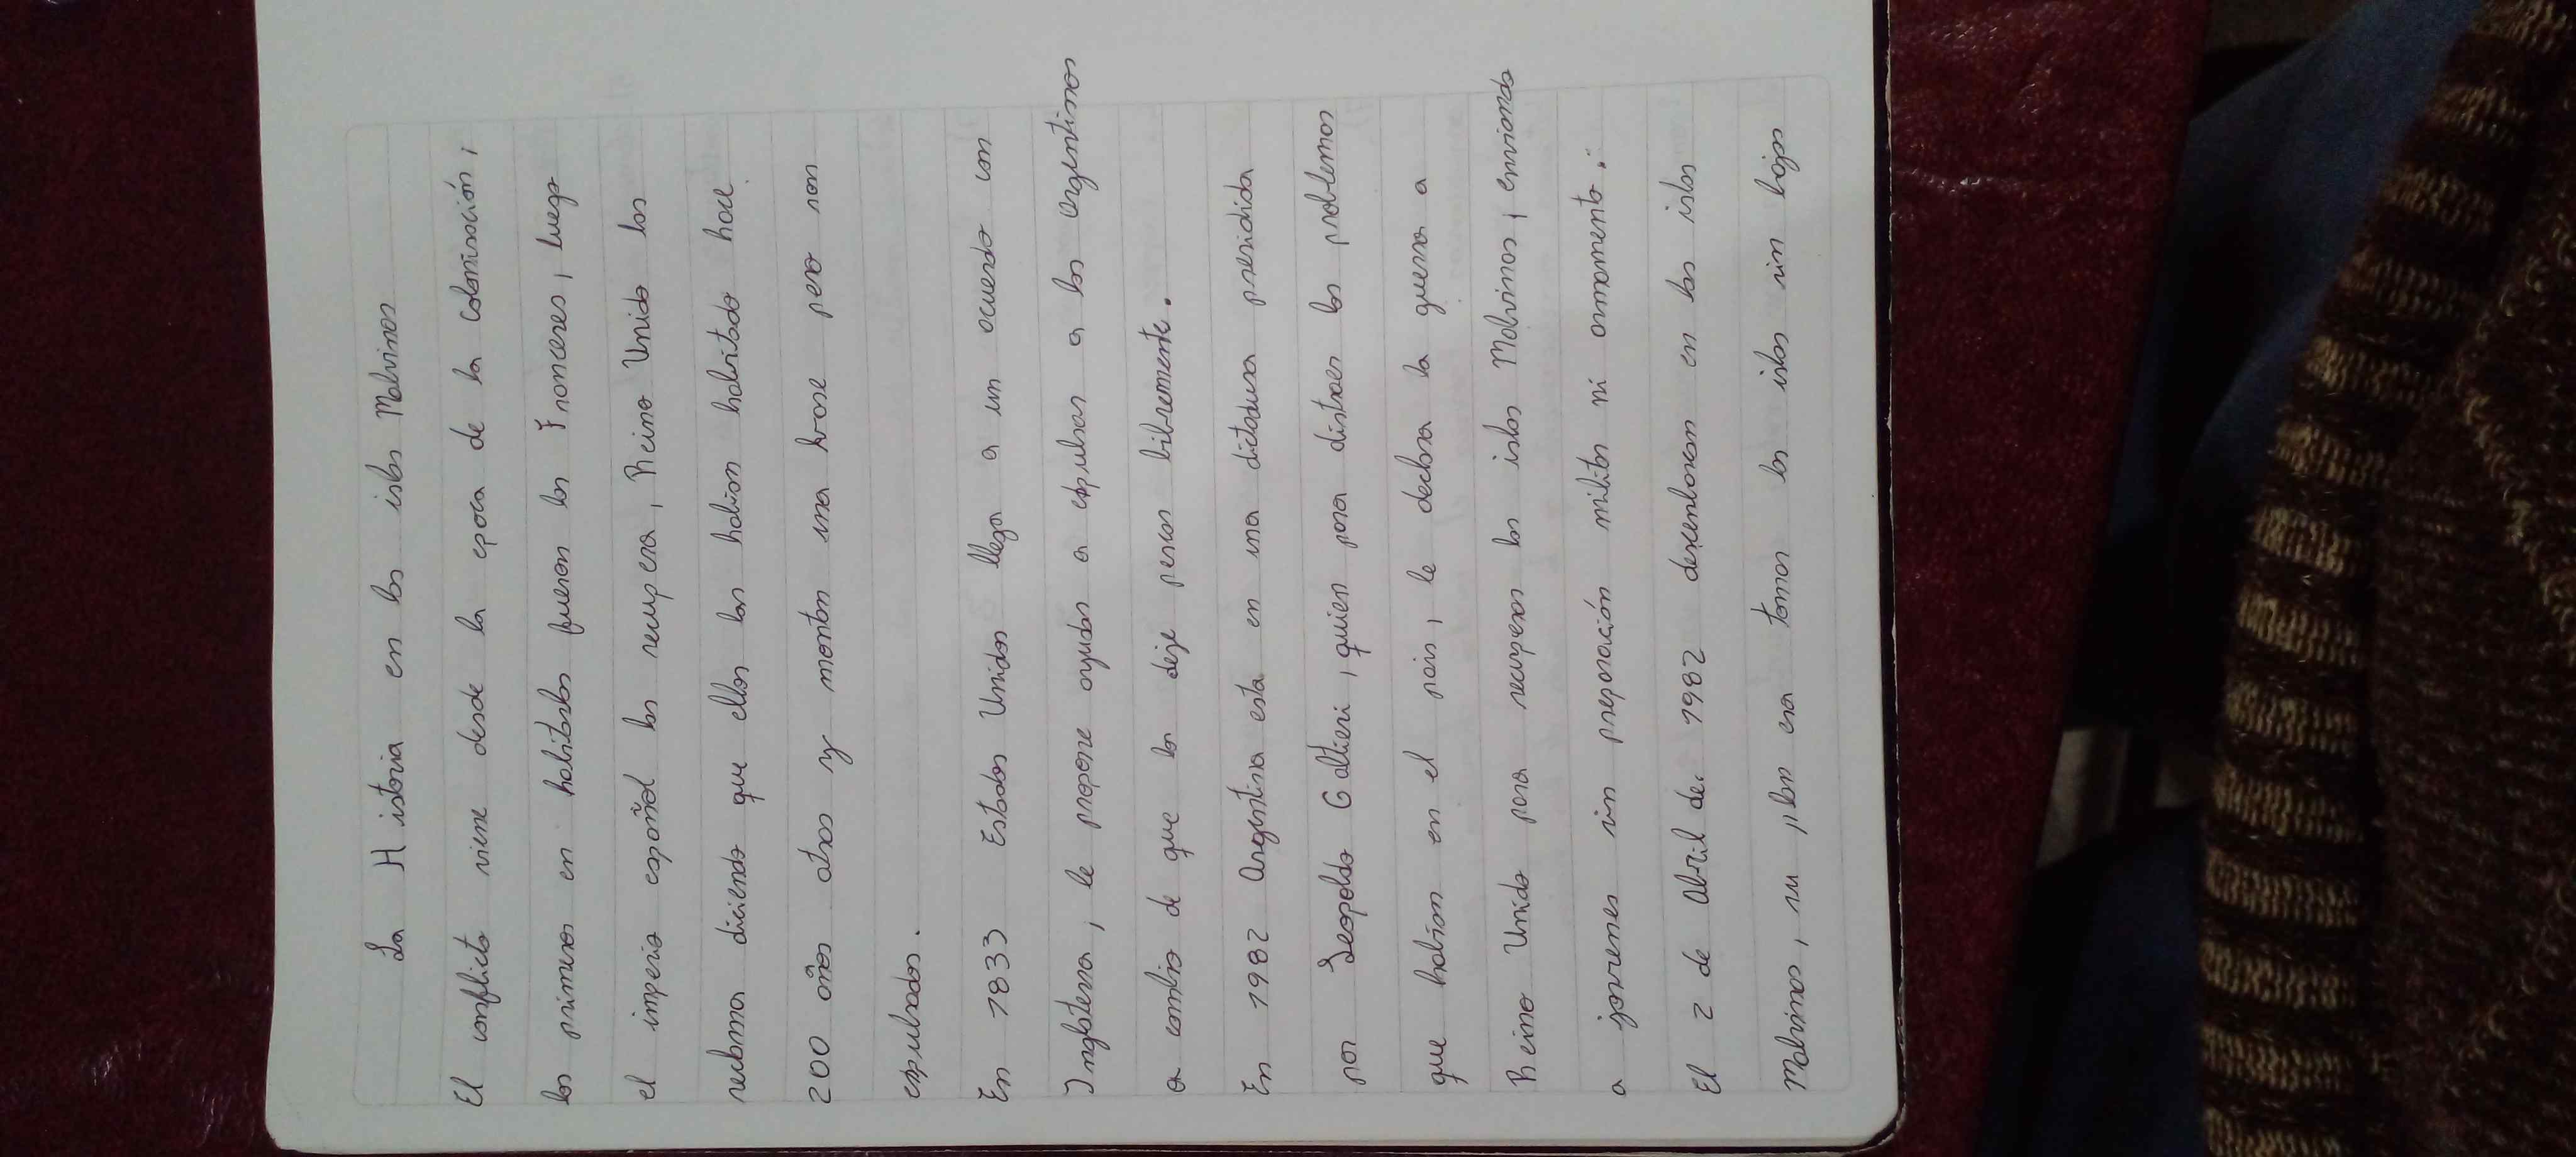 La Historia en las islas Malvinas
El conflicto viene desde la epoca de la colonización,
los primeros en habitarlas fueron los Franceses, luego
el imperio español las recupera, Reino Unido las
reclama diciendo que ellos las habian habitado hace
200 años atras y montan una base pero son
expulsados.
En 1833 Estados Unidos llega a un acuerdo con
Inglaterra, le propone ayudar a expulsar a los argentinos
a cambio de que los deje pescar libremente.
En 1982 Argentina esta en una dictadura presidida
por Leopoldo Galtieri, quien para distraer los problemas
que habian en el pais, le declara la guerra a
Reino Unido para recuperar las islas Malvinas, enviando
a jovenes sin preparación militar ni armamento.
El 2 de Abril de 1982 desembarcan en las islas
Malvinas, su plan era tomar las islas sin bajas